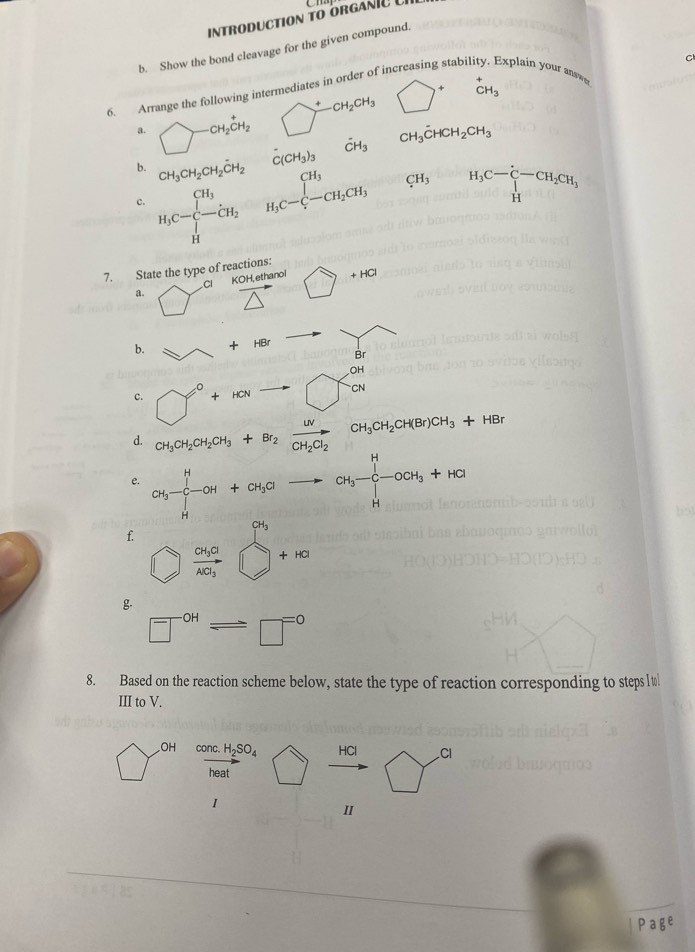 INTRODUCTION TO ORGANIC
b. Show the bond cleavage for the given compound.
6. Arrange the following intermediates in order of increasing stability. Explain your answer.
a. CH₂C⁺H₂ + CH₂CH₃ + C⁺H₃
b. CH₃CH₂CH₂C̄H₂ C̄(CH₃)₃ C̄H₃ CH₃C̄HCH₂CH₃
c.
CH₃
H₃C—C—ĊH₂
H
CH₃
H₃C—Ċ—CH₂CH₃
ĊH₃
H₃C—Ċ—CH₂CH₃
H
7. State the type of reactions:
a. Cl KOH,ethanol △ + HCl
b. + HBr
Br
c. O + HCN OH
CN
d. CH₃CH₂CH₂CH₃ + Br₂ UV CH₂Cl₂ CH₃CH₂CH(Br)CH₃ + HBr
e.
H
CH₃—C—OH + CH₃Cl
H
H
CH₃—C—OCH₃ + HCl
H
f.
CH₃Cl
AlCl₃
CH₃
+ HCl
g.
OH O
8. Based on the reaction scheme below, state the type of reaction corresponding to steps I to
III to V.
OH conc. H₂SO₄ HCl Cl
heat
I II
| Page